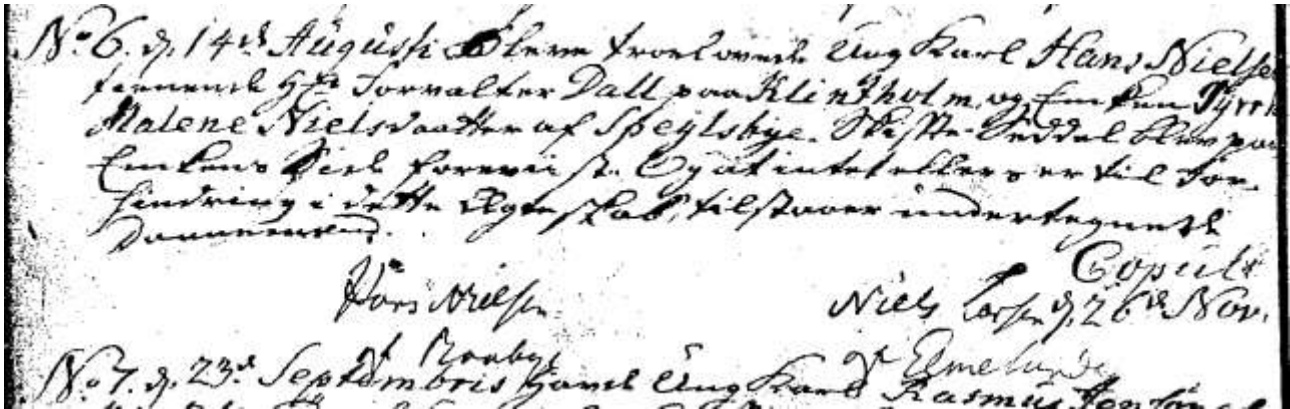 No 6. d. 14de Augusti bleve trolovede Ung Karl Hans Nielsen
tienende Hr Forvalter Dall paa Klintholm, og Enken
Malene Nielsdaatter af Speylsbye. Skifte-Seddel blev paa
Enkens Side foreviist. Og at intet ellers er til For-
hindring i dette Ægteskab, tilstaaer undertegnede
Dannemænd.
Copul:
Nielsen Niels Larsen d. 26de Nov.
af af Elmelunde
No 7. d. 23de Septembris havde Ung Karl Rasmus